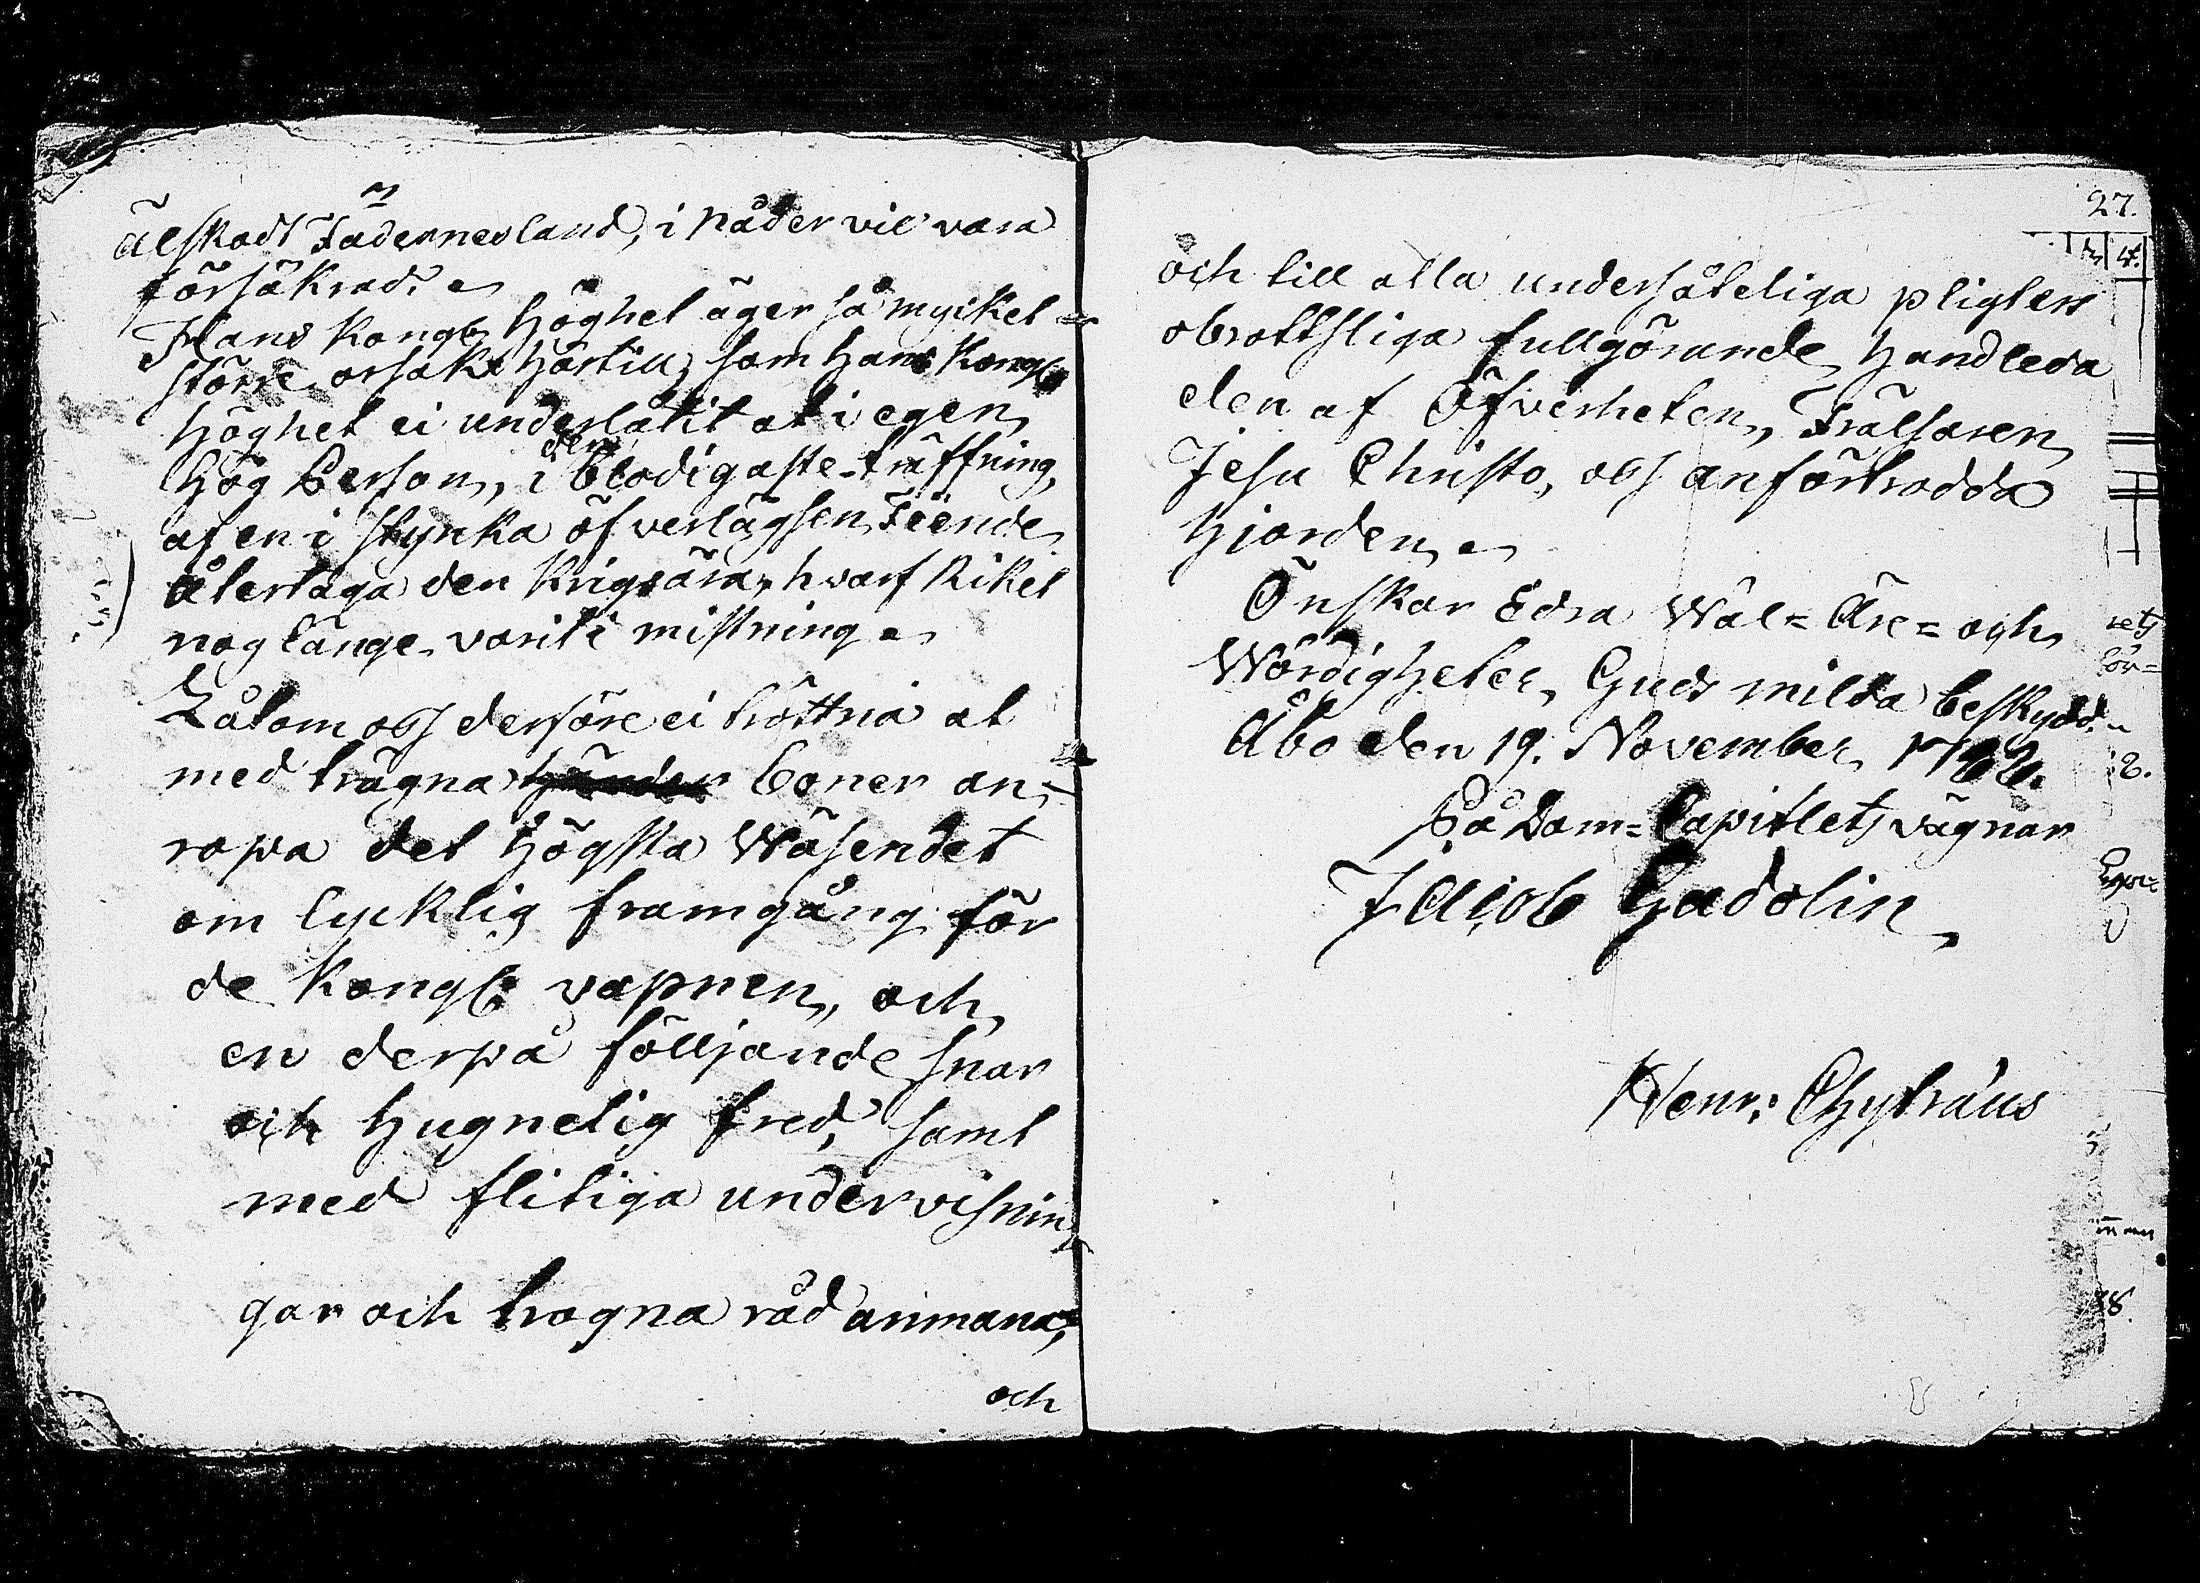 älskadt Fädernesland, i nåder vil vara
försäkrad.
Hans Kongl. Höghet äger så myiket
större orsak härtill, som Hans Kongl.
Höghet ei underlåtit at i egen
hög Person, i den blodigaste träffning,
af en i styrka öfverlägsen Fiende
återtaga den Krigsära, hvaraf Riket
nog länge varit i mistning.
Låtom oss derföre ei tröttna at
med trägna böner an-
ropa det Högsta Wäsendet
om lycklig framgång för
de Kongl. vapnen, och
en derpå följjande snar
och hugnelig fred, samt
med flitiga undervisnin
gar och trogna råd anmana,
och
27.
och till alla undersåteliga pligters
obrottsliga fullgörande handleda
den af Öfverheten, Frälsaren
Jesu Christo, oss anförtrodda
hjorden.
Önskar Edra Wäl-Äre- och
Wördigheter, Guds milda beskydd.
Åbo den 19. November
På Dom-Capitlets vägnar
Jacob Gadolin
Henr: Chyträus